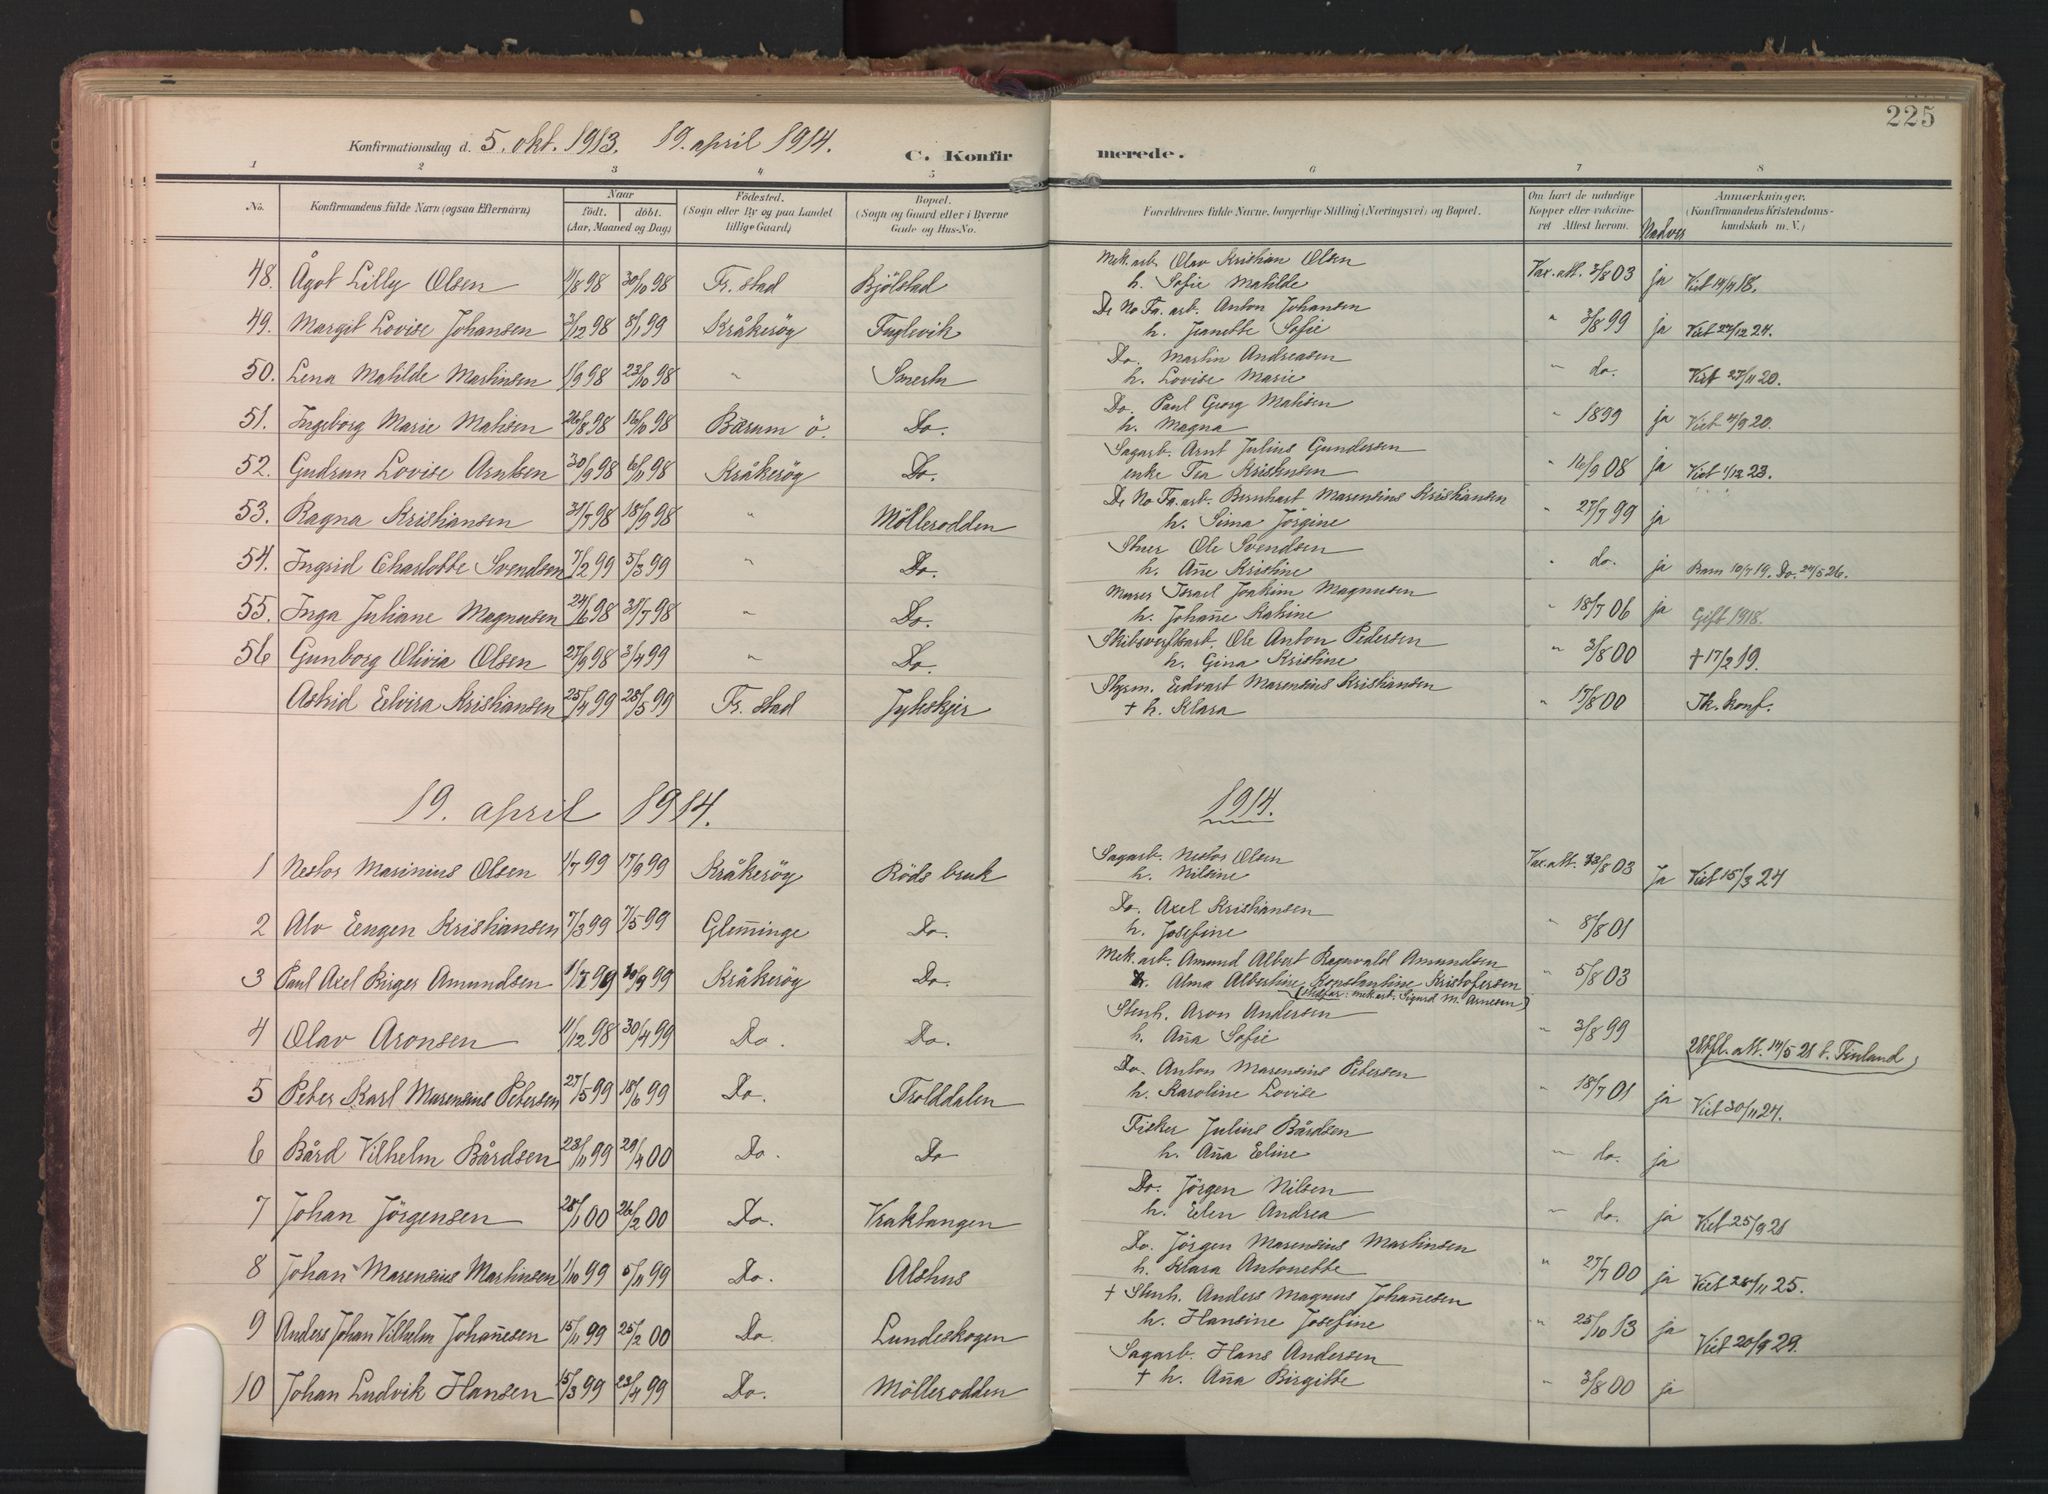 225
Konfirmationsdag d. 5. okt. 1913. 19. april 1914. C. Konfirmerede.
1 2 3 4 5 6 7 8
No. Konfirmandens fulde Navn (ogsaa Efternavn) Naar født. døbt. (Aar, Maaned og Dag) Fødested. (Sogn eller By og paa Landet tillige Gaard) Bopæl. (Sogn og Gaard eller i Byerne Gade og Hus-No. Forældrenes fulde Navne, borgerlige Stilling (Næringsvei) og Bopæl. Om havt de naturlige Kopper eller vakcineret. Attest herom. Nadver Anmærkninger. (Konfirmandens Kristendomskundskab m. V.)
48. Ågot Lilly Olsen 11/8 98 30/10 98 Fr. stad Bjölstad Mek. arb. Olav Kristian Olsen
h. Sofie Matilde Vax. att. 3/8 03 ja Viet 14/9 18.
49. Margit Lovise Johansen 3/12 98 8/1 99 Kråkeröy Fuglevik De No Fa. arb. Anton Johansen
h. Jeanette Sofie " 3/8 99 ja Viet 27/12 24.
50. Lena Matilde Martinsen 1/9 98 23/10 98 " Smertu Do. Martin Andreasen
h. Lovise Marie " do. Viet 27/11 20.
51. Ingeborg Marie Matisen 26/8 98 16/10 98 Bærum ö. Do. Do. Paul Georg Matisen
h. Magna " 1899 ja Viet 4/9 20.
52. Gudrun Lovise Arntsen 30/9 98 6/11 98 Kråkeröy Do. Sagarb. Arnt Julius Gundersen
enke Tea Kristensen " 16/9 08 ja Viet 1/12 23.
53. Ragna Kristiansen 31/7 98 18/9 98 " Möllerodden De No Fa. arb. Bernhart Marensius Kristiansen
h. Sina Jörgine " 27/7 99 ja
54. Ingrid Charlotte Svendsen 7/2 99 5/3 99 " Do. Stuer Ole Svendsen
h. Añe Kristine " do. ja Barn 10/7 19. Do. 24/5 26.
55. Inga Juliane Magnusen 24/6 98 31/7 98 " Do. Murer Israel Joakim Magnusen
h. Johañe Katine " 18/7 06 ja Gift 1918.
56 Gunborg Olivia Olsen 27/9 98 3/4 99 " Do. Skibsverftsarb. Ole Anton Pedersen
h. Gina Kristine " 3/8 00 † 17/2 19.
Astrid Elvira Kristiansen 25/4 99 28/5 99 Fr. stad Jyteskjer Styrm. Edvart Marensius Kristiansen
† h. Klara " 17/8 00 Ik. konf.
19. april 1914. 1914.
1 Nestor Marinius Olsen 11/7 99 17/9 99 Kråkeröy Röds bruk Sagarb. Nestor Olsen
h. Nilsine Vax. att. 13/8 03 Ja Viet 15/3 24
2 Alv Eengen Kristiansen 7/3 99 7/5 99 Glem̃inge Do. Do. Axel Kristiansen
h. Josefine " 8/8 01
3 Paul Axel Birger Amundsen 1/7 99 30/9 99 Kråkeröy Do. Mek. arb. Amund Albert Ragnvald Amundsen
h. Alma Albertine Konstantine Kristofersen
(Stedfar: mek. arb. Sigurd M. Arnesen) " 5/8 03
4 Olav Aronsen 11/12 98 30/4 99 Do. Do. Stenh. Aron Andersen
h. Aña Sofie " 3/8 99 Utfl. att. 14/5 21 t. Finland
5 Peter Karl Marensius Petersen 27/5 99 18/6 99 Do. Trolddalen Do. Anton Marensius Petersen
h. Karoline Lovise " 18/7 01 ja Viet 30/11 24.
6 Bård Vilhelm Bårdsen 23/11 99 29/4 00 Do. Do Fisker Julius Bårdsen
h. Aña Eline " do. ja
7 Johan Jörgensen 28/1 00 26/2 00 Do. Vraktangen Do. Jörgen Nilsen
h. Elen Andrea " do. ja Viet 25/9 21
8 Johan Marensius Martinsen 1/10 99 5/11 99 Do. Alshus Do. Jörgen Marensius Martinsen
h. Klara Antonette " 27/7 00 ja Viet 28/11 25.
9 Anders Johan Vilhelm Johañesen 15/11 99 25/2 00 Do. Lundeskogen † Stenh. Anders Magnus Johañesen
h. Hansine Josefine " 25/10 13 ja Viet 20/9 29.
10 Johan Ludvik Hansen 15/3 99 23/4 99 Do. Möllerodden Sagarb. Hans Andersen
† h. Aña Birgitte " 3/8 00 ja